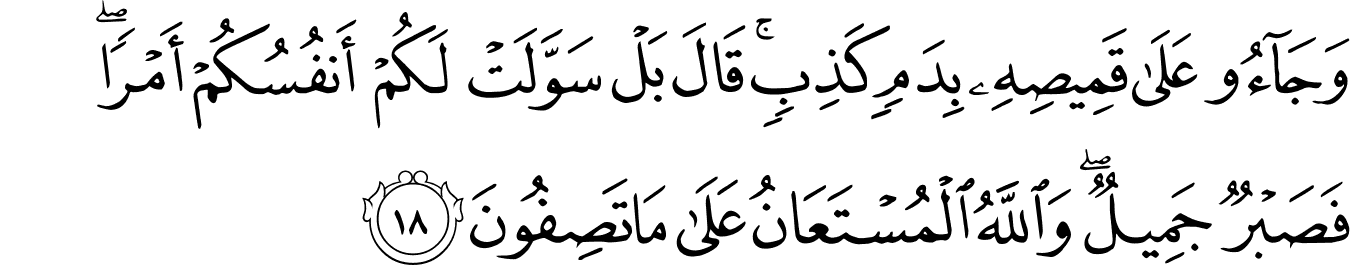 وَجَآءُو عَلَىٰ قَمِيصِهِۦ بِدَمٍ كَذِبٍ ۚ قَالَ بَلْ سَوَّلَتْ لَكُمْ أَنفُسُكُمْ أَمْرًا ۖ
فَصَبْرٌ جَمِيلٌ ۖ وَٱللَّهُ ٱلْمُسْتَعَانُ عَلَىٰ مَا تَصِفُونَ ١٨